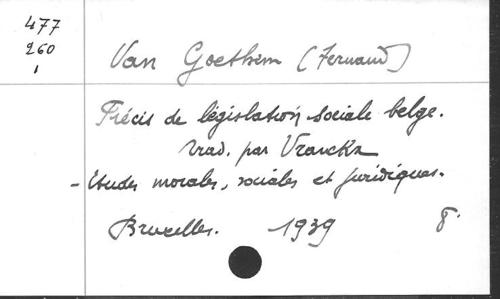 477
260
1
Van Goethem (Fernand)
Précis de législation sociale belge.
trad. par Vranckx
- Etudes morales, sociales et juridiques.
Bruxelles. 1939 8°